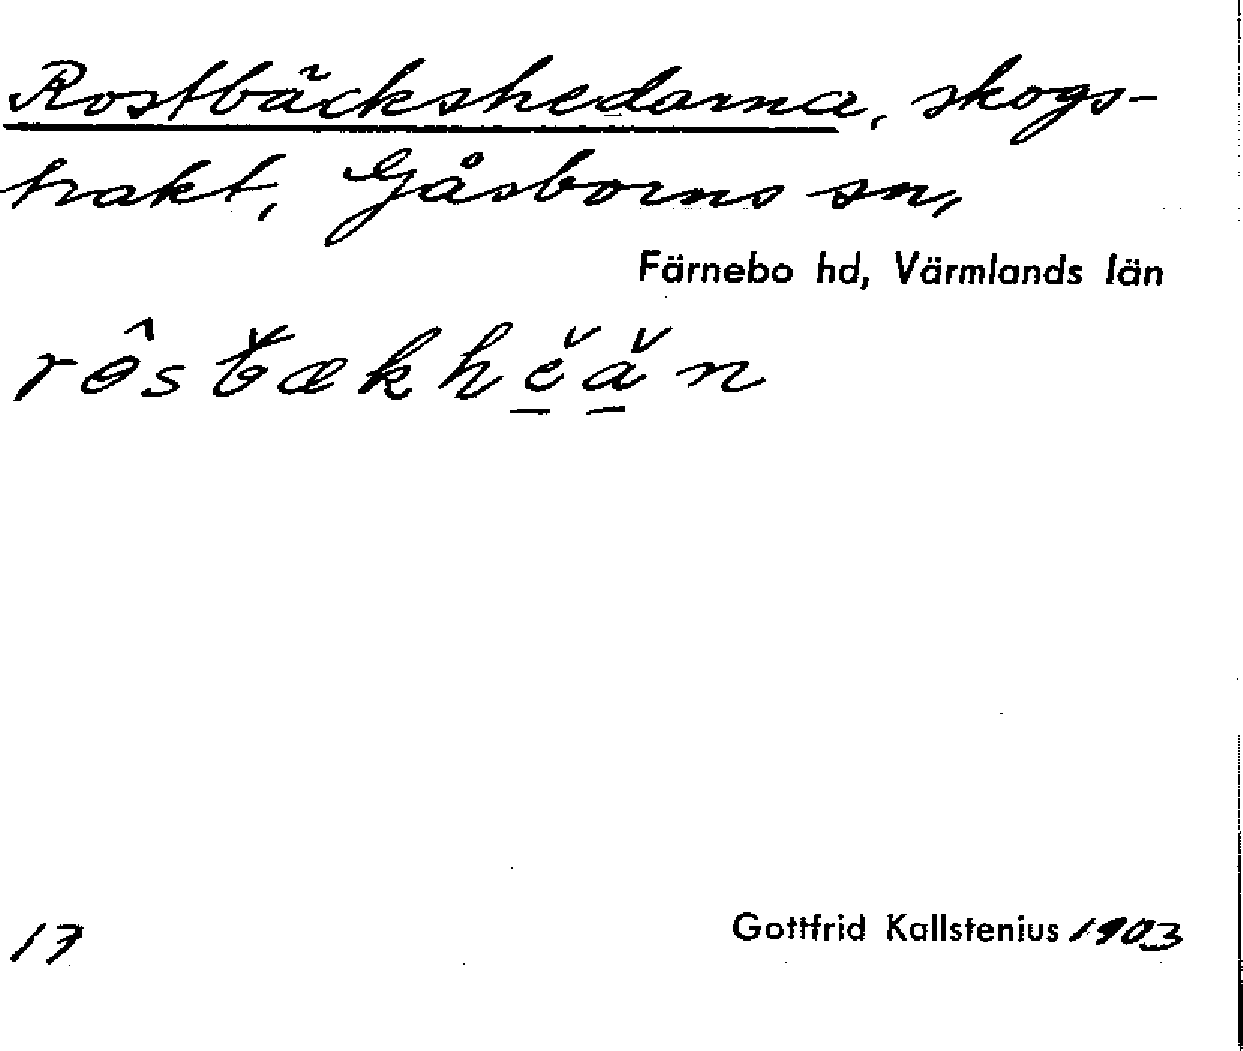 Rostbäckshedarna, skogs-
trakt, Gåsborns sn,
Färnebo hd, Värmlands län
rɵ̂stb̆ækhĕ̱ă̱n
Gottfrid Kallstenius 1903
17